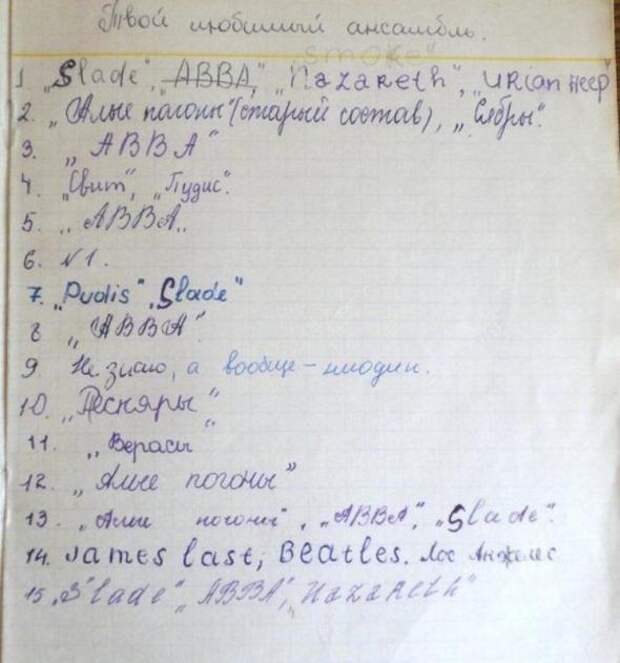 Твой любимый ансамбль.
"Smoke"
1. „Slade", „ABBA", „Nazareth", „URian Heep"
2. „Алые погоны" (старый состав), „Сябры".
3. „ABBA"
4. „Свит", „Пудис".
5. „ABBA„
6. N1.
7. „Pudis", „Slade"
8 „ABBA".
9. Не знаю, а вообще – ниодин.
10 „Песняры„
11. „Верасы
12. „Алые погоны"
13. „Алые погоны", „ABBA", „Slade".
14. James last, Beatles. Лос Анжелес
15 „Slade" „ABBA", „Nazareth"